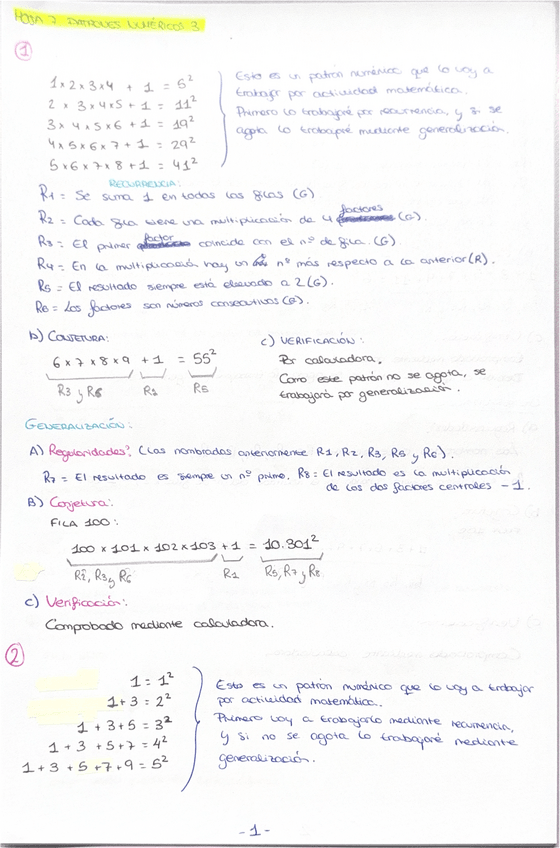 HOJA 7 PATRONES NUMÉRICOS 3
1
1 x 2 x 3 x 4 + 1 = 5²
2 x 3 x 4 x 5 + 1 = 11²
3 x 4 x 5 x 6 + 1 = 19²
4 x 5 x 6 x 7 + 1 = 29²
5 x 6 x 7 x 8 + 1 = 41²
Esto es un patrón numérico que lo voy a
trabajar por actividad matemática.
Primero lo trabajaré por recurrencia, y si se
agota lo trabajaré mediante generalización.
RECURRENCIA:
R1 = Se suma 1 en todas las filas (G).
R2 = Cada fila tiene una multiplicación de 4 factores (G).
R3 = El primer factor coincide con el nº de fila. (G).
R4 = En la multiplicación hay un nº más respecto a la anterior (R).
R5 = El resultado siempre está elevado a 2 (G).
R6 = Los factores son números consecutivos (G).
b) CONJETURA:
6 x 7 x 8 x 9 + 1 = 55²
R3 y R6 R1 R5
c) VERIFICACIÓN:
Por calculadora.
Como este patrón no se agota, se
trabajará por generalización.
GENERALIZACIÓN:
A) Regularidades: (Las nombradas anteriormente R1, R2, R3, R5 y R6).
R7 = El resultado es siempre un nº primo. R8 = El resultado es la multiplicación
de los dos factores centrales - 1.
B) Conjetura:
FILA 100:
100 x 101 x 102 x 103 + 1 = 10.301²
R2, R3 y R6 R1 R5, R7 y R8
c) Verificación:
Comprobado mediante calculadora.
2
1 = 1²
1 + 3 = 2²
1 + 3 + 5 = 3²
1 + 3 + 5 + 7 = 4²
1 + 3 + 5 + 7 + 9 = 5²
Esto es un patrón numérico que lo voy a trabajar
por actividad matemática.
Primero voy a trabajarlo mediante recurrencia,
y si no se agota lo trabajaré mediante
generalización.
- 1 -